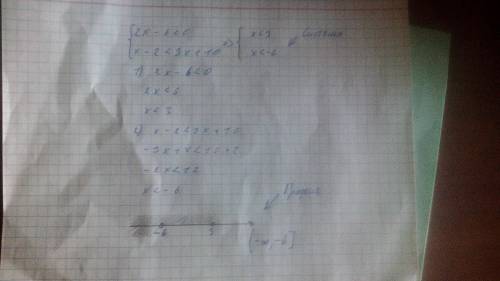 { 2x - 6 < 0
x - 2 < 3x + 10 => { x < 3
x < -6
Система
1) 2x - 6 < 0
2x < 6
x < 3
2) x - 2 < 3x + 10
-3x + x < 10 + 2
-2x < 12
x < -6
-6 3
(-∞, -6]